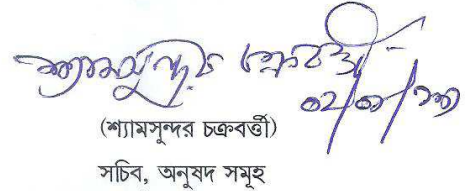 শ্যামসুন্দর চক্রবর্ত্তী
(শ্যামসুন্দর চক্রবর্ত্তী)
সচিব, অনুষদ সমূহ